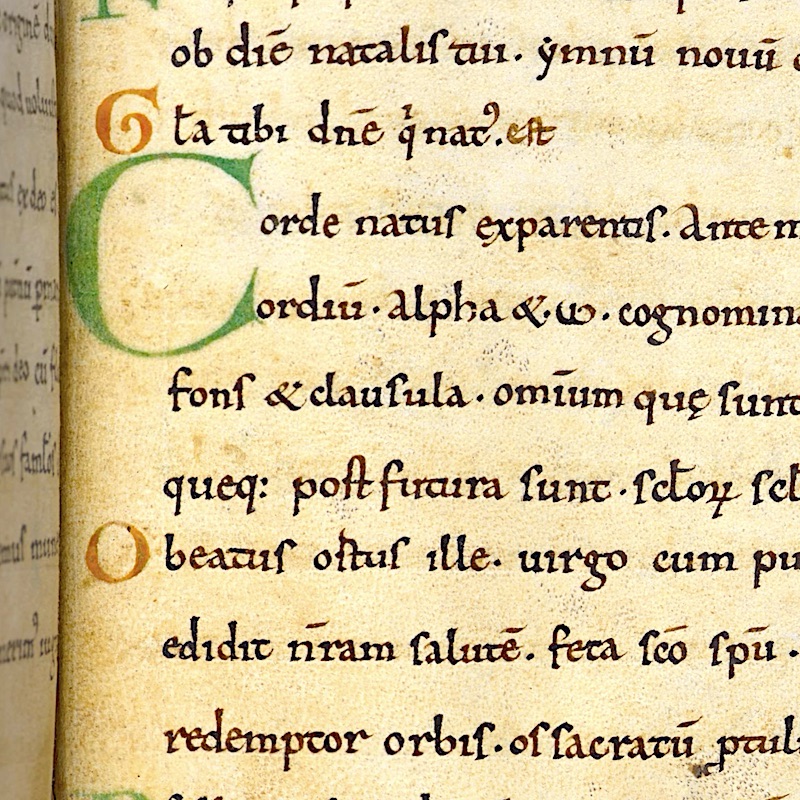 ob diē natalis tui. ẏmnū nouū
Gła tibi dnē q̇ nat᾽. est
Corde natus ex parentis. Ante m
Cordiū. alpha &. ω. cognomina
fons & clausula. omīum quę sunt
queq: post futura sunt. scłoꝝ scł
O beatus ostus ille. uirgo cum pu
edidit nr̄am salutē. feta sc̄o sp̄u.
redemptor orbis. os sacratū ꝓtuli